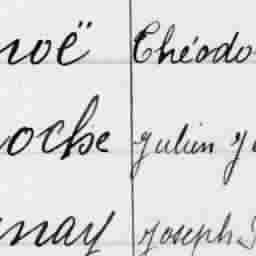 noë Théodo
oche Julien Ju
nay Joseph